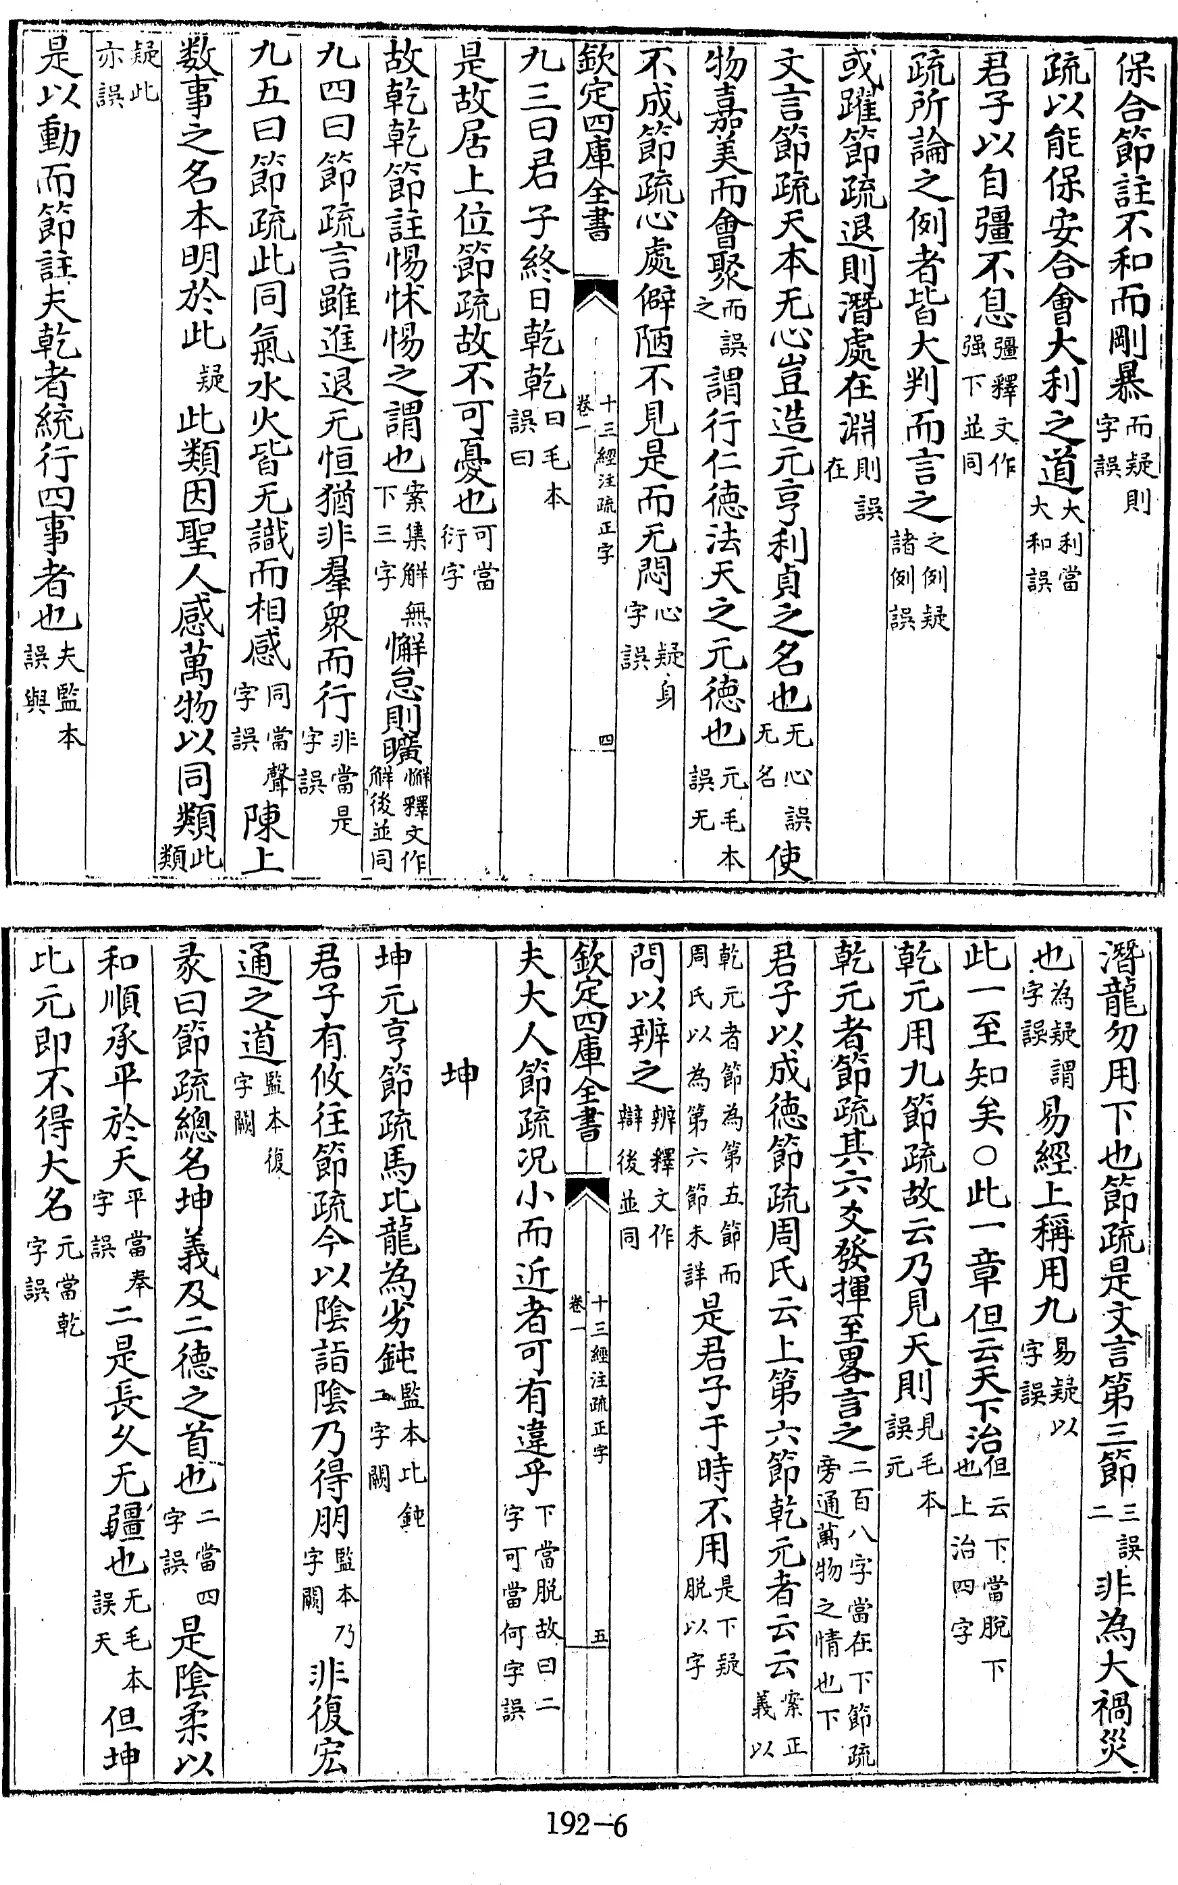 保合節註不和而剛暴而疑則字誤
疏以能保安合會大利之道大利當大和誤
君子以自彊不息彊釋文作强下並同
疏所論之例者皆大判而言之之例疑諸例誤
或躍節疏退則潛處在淵則誤在
文言節疏天本无心豈造元亨利貞之名也无心誤无名使
物嘉美而會聚而誤之謂行仁德法天之元德也元毛本誤无
不成節疏心處僻陋不見是而无悶心疑身字誤
欽定四庫全書
卷一
十三經注疏正字
四
九三曰君子終日乾乾曰毛本誤曰
是故居上位節疏故不可憂也可當衍字
故乾乾節註惕怵惕之謂也案集解無下三字懈怠則曠懈釋文作解後並同
九四曰節疏言雖進退无恒猶非羣衆而行非當是字誤
九五曰節疏此同氣水火皆无識而相感同當聲字誤陳上
數事之名本明於此疑此類因聖人感萬物以同類此類
疑此亦誤
是以動而節註夫乾者統行四事者也夫監本誤與
潛龍勿用下也節疏是文言第三節三誤二非為大禍災
也為疑謂字誤易經上稱用九易疑以字誤
此一至知矣○此一章但云天下治但云下當脫下也上治四字
乾元用九節疏故云乃見天則見毛本誤元
乾元者節疏其六爻發揮至畧言之二百八字當在下節疏旁通萬物之情也下
君子以成德節疏周氏云上第六節乾元者云云案正義以
乾元者節為第五節而周氏以為第六節未詳是君子于時不用是下疑脫以字
問以辨之辨釋文作辯後並同
欽定四庫全書
卷一
十三經注疏正字
五
夫大人節疏況小而近者可有違乎下當脫故曰二字可當何字誤
坤
坤元亨節疏馬比龍為劣鈍監本比鈍二字闕
君子有攸往節疏今以陰詣陰乃得朋監本乃字闕非復宏
通之道監本復字闕
彖曰節疏總名坤義及二德之首也二當四字誤是陰柔以
和順承平於天平當奉字誤二是長久无疆也无毛本誤天但坤
比元即不得大名元當乾字誤
192-6